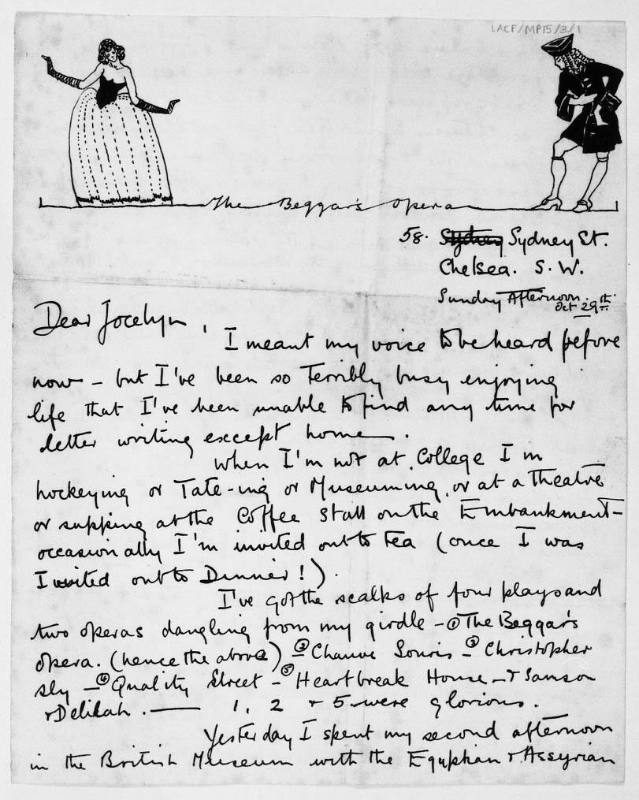 LACF/MP15/3/1
The Beggar's Opera
58. Sydney Sydney St.
Chelsea. S.W.
Sunday Afternoon.
Oct 29th.
Dear Jocelyn,
I meant my voice to be heard before
now – but I've been so terribly busy enjoying
life that I've been unable to find any time for
letter writing except home.
When I'm not at College I'm
hockeying or Tate-ing or Museuming, or at a theatre
or supping at the Coffee Stall on the Embankment –
occasionally I'm invited out to tea (once I was
Invited out to Dinner!).
I've got the scalps of four plays and
two operas dangling from my girdle – ① The Beggar's
opera. (hence the above) – ② Chauve Souris – ③ Christopher
Sly – ④ Quality Street – ⑤ Heartbreak House – & Samson
& Delilah. — 1, 2 & 5 were glorious.
Yesterday I spent my second afternoon
in the British Museum with the Egyptian & Assyrian